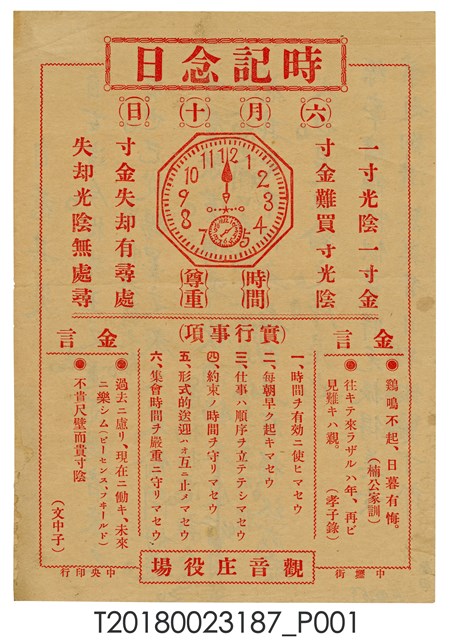 時記念日
六月十日
一寸光陰一寸金
寸金難買寸光陰
寸金失却有尋處
失却光陰無處尋
12
1
2
3
4
5
7
8
9
10
11
時間
尊重
金言
鷄鳴不起、日暮有悔。
(楠公家訓)
往キテ來ラザルハ年、再ビ
見難キハ親。
(孝子錄)
(實行事項)
一、時間ヲ有効ニ使ヒマセウ
二、每朝早ク起キマセウ
三、仕事ハ順序ヲ立テテシマセウ
四、約束ノ時間ヲ守リマセウ
五、形式的送迎ハオ互ニ止メマセウ
六、集會時間ヲ嚴重ニ守リマセウ
金言
過去ニ慮リ、現在ニ働キ、未來
ニ樂シム(ビーセンス、フヰールド)
不貴尺壁而貴寸陰
(文中子)
中壢街
觀音庄役場
中央印行
T20180023187_P001